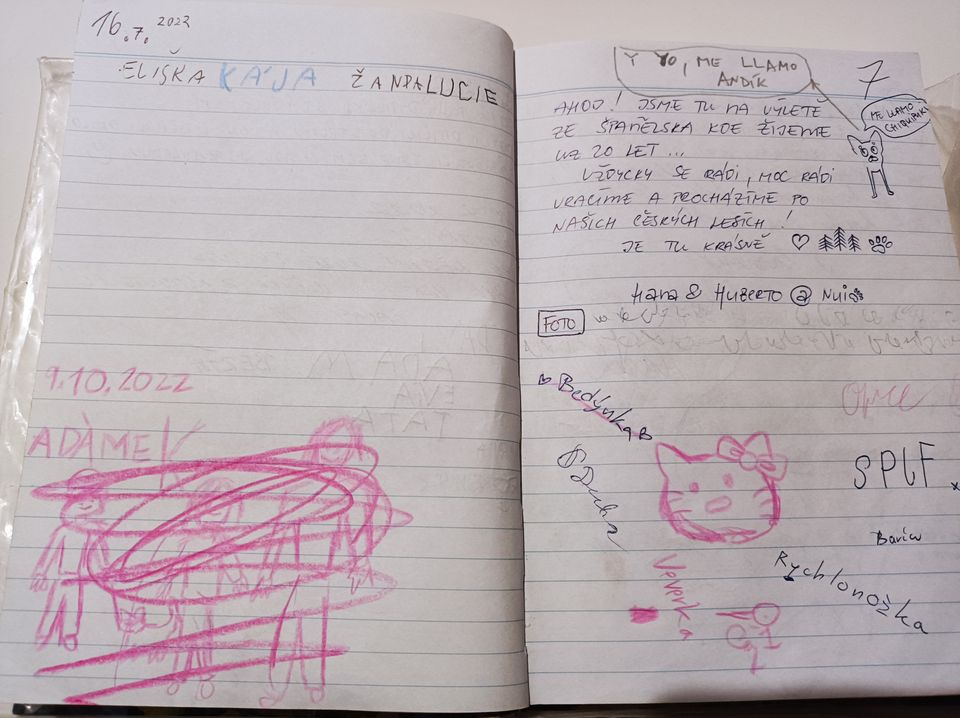 16.7. 2022
ELIŠKA KÁJA ŽANDA LUCIE
9.10.2022
ADÁMEK
Y YO, ME LLAMO
ANDÍK
7
ME LLAMO
AHOJ! JSME TU NA VÝLETĚ
ZE ŠPANĚLSKA KDE ŽIJEME
UZ 20 LET...
VŽDYCKY SE RÁDI, MOC RÁDI
VRACÍME A PROCHÁZÍME PO
NAŠICH ČESKÝCH LESÍCH!
JE TU KRÁSNĚ
Hana & Huberto @
FOTO
Bedýnka
Opice
SPLF
Rychlonožka
Veverka